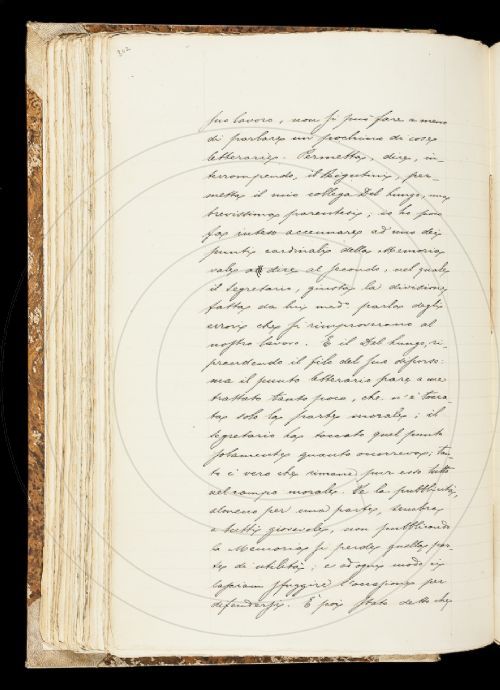 302
suo lavoro, non si può fare a meno
di parlare un pochino di cose
letterarie. Permetta, dice, in-
terrompendo, il Rigutini, per-
metta il mio collega Del Lungo, una
brevissima parentesi; io ho poco
fa inteso accennare ad uno dei
punti cardinali della Memoria
vale a dire al secondo, nel quale
il Segretario, giusta la divisione
fatta da lui med.º parla degli
errori che si rimproverano al
nostro lavoro. E il Del Lungo, ri-
prendendo il filo del suo discorso:
ma il punto letterario pare a me
trattato tanto poco, che n'è tocca-
ta solo la parte morale; il
Segretario ha toccato quel punto
solamente quanto occorreva; tan-
to è vero che rimane pur esso tutto
nel campo morale. Se la pubblicità,
almeno per una parte, sembra
a tutti giovevole, non pubblicando
la Memoria si perde quella par-
te di utilità; e ad ogni modo ci
lasciamo sfuggire l'occasione per
difenderci. E poi stato detto che